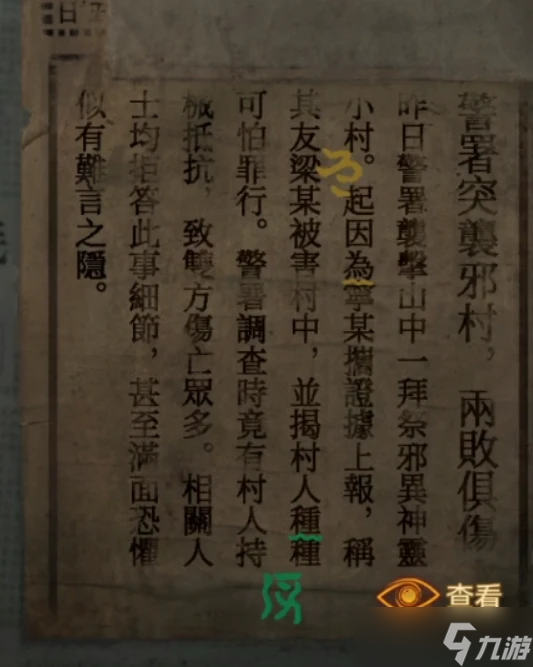 警署突襲邪村，兩敗俱傷
昨日警署襲擊山中一拜祭邪異神靈
小村。起因為寧某攜證據上報，稱
其友梁某被害村中，並揭村人種種
可怕罪行。警署調查時竟有村人持
械抵抗，致雙方傷亡眾多。相關人
士均拒答此事細節，甚至滿面恐懼
似有難言之隱。
查看
九游